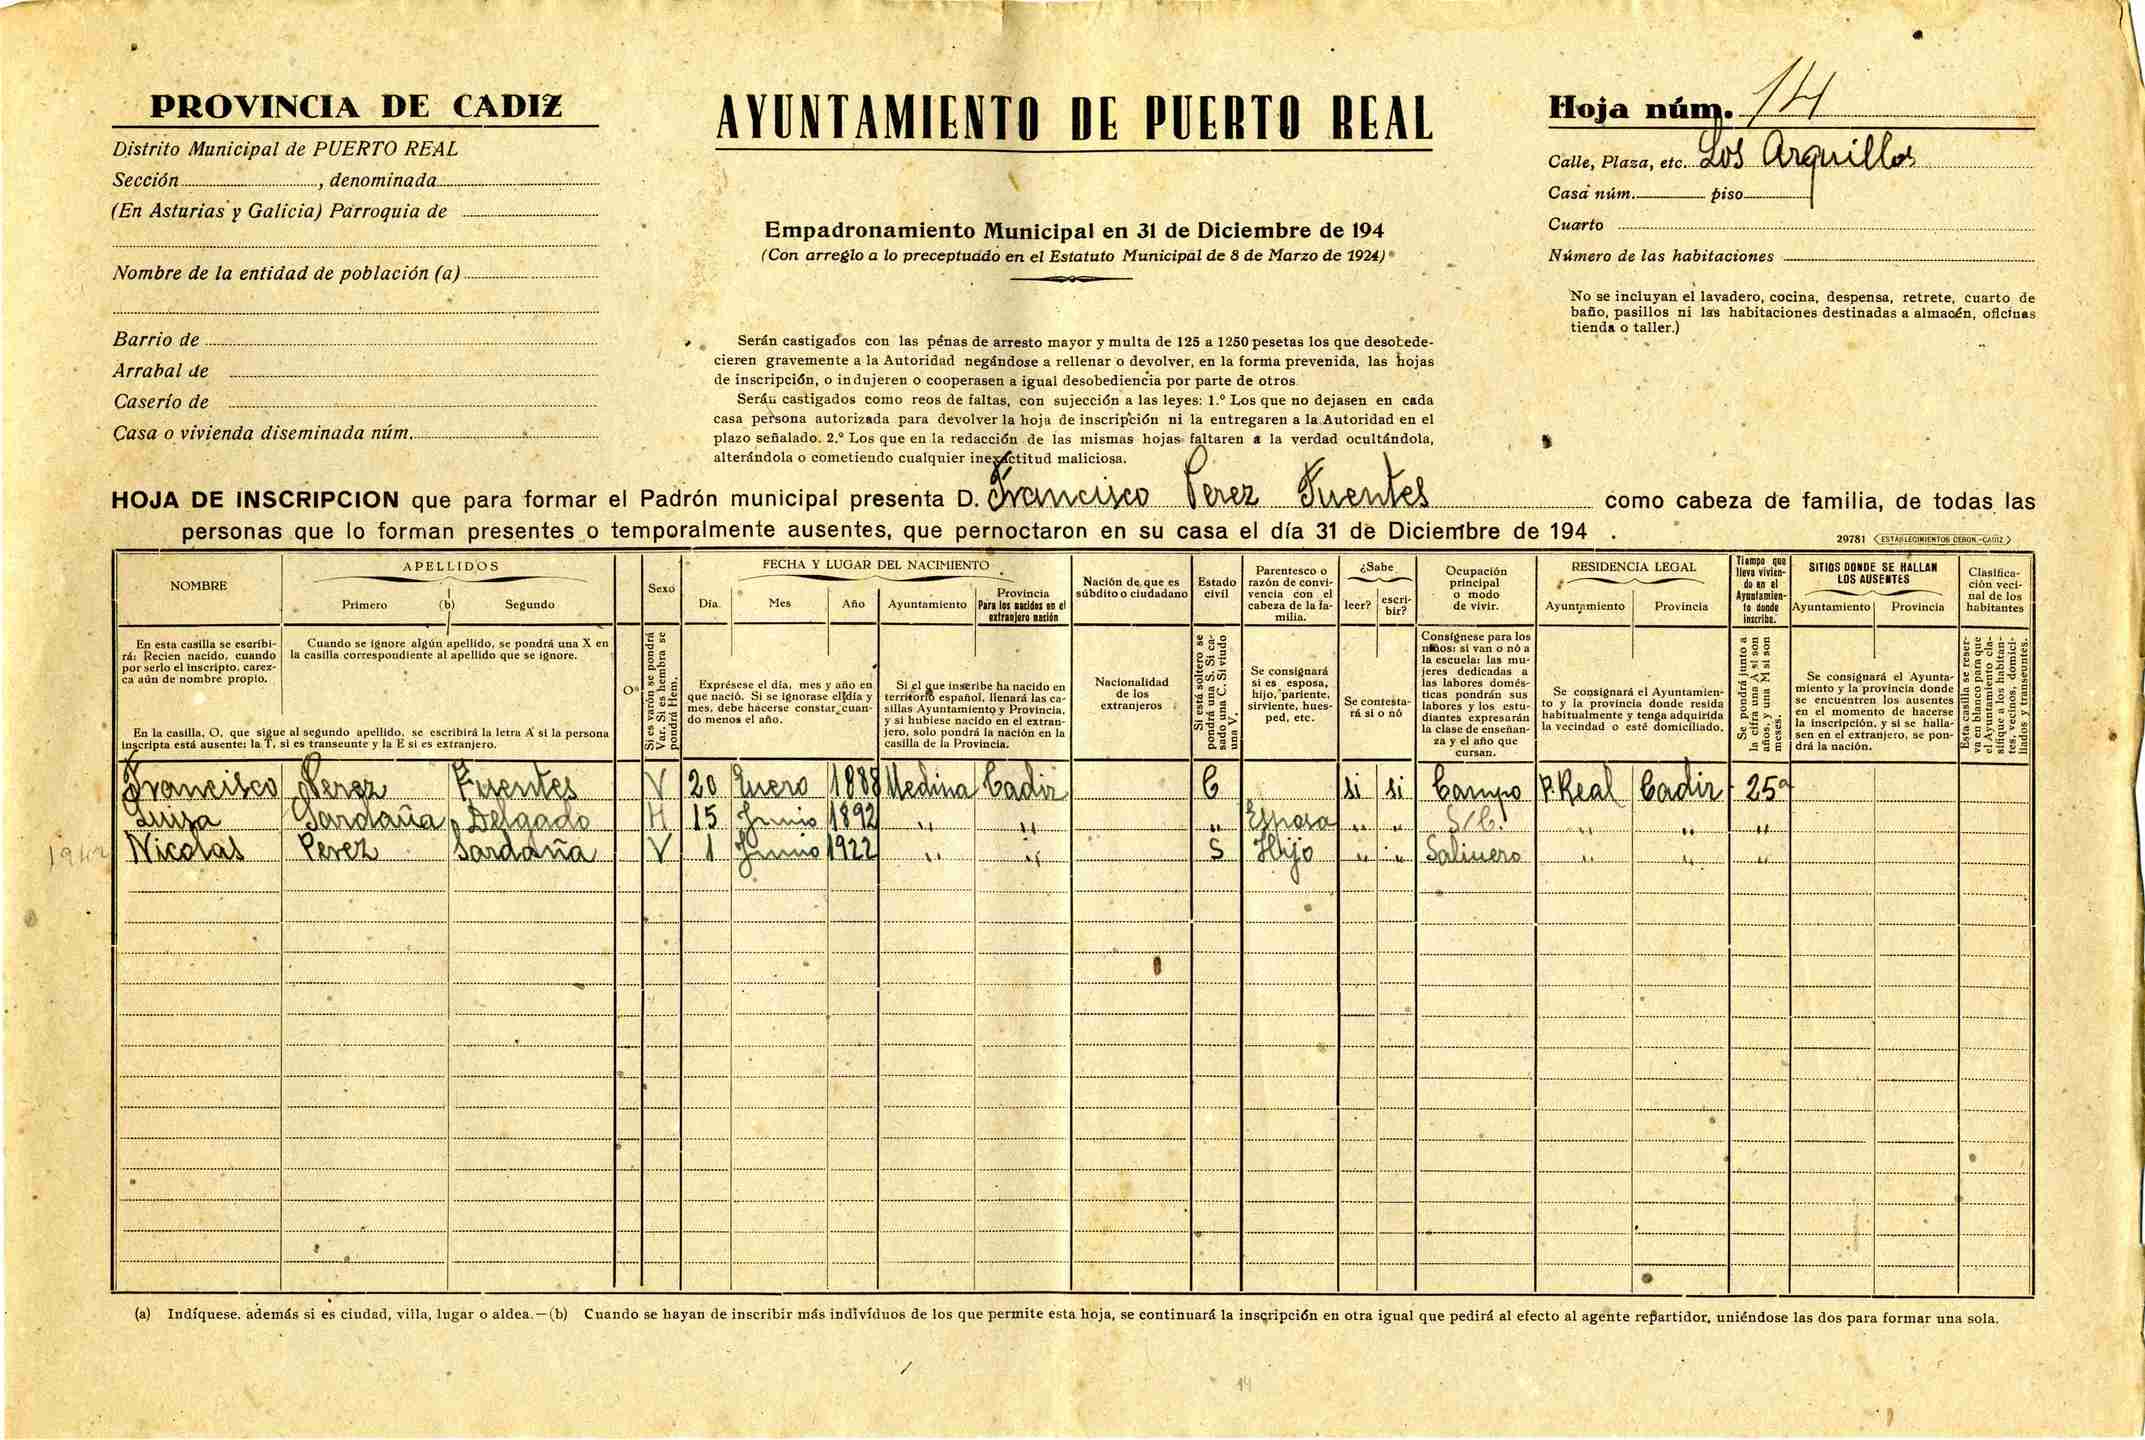 PROVINCIA DE CADIZ
Distrito Municipal de PUERTO REAL
Sección , denominada
(En Asturias y Galicia) Parroquia de
Nombre de la entidad de población (a)
Barrio de
Arrabal de
Caserío de
Casa o vivienda diseminada núm.
AYUNTAMIENTO DE PUERTO REAL
Empadronamiento Municipal en 31 de Diciembre de 194
(Con arreglo a lo preceptuado en el Estatuto Municipal de 8 de Marzo de 1924)
Serán castigados con las penas de arresto mayor y multa de 125 a 1250 pesetas los que desobede-
cieren gravemente a la Autoridad negándose a rellenar o devolver, en la forma prevenida, las hojas
de inscripción, o indujeren o cooperasen a igual desobediencia por parte de otros.
Serán castigados como reos de faltas, con sujección a las leyes: 1.º Los que no dejasen en cada
casa persona autorizada para devolver la hoja de inscripción ni la entregaren a la Autoridad en el
plazo señalado. 2.º Los que en la redacción de las mismas hojas faltaren a la verdad ocultándola,
alterándola o cometiendo cualquier inexactitud maliciosa.
Hoja núm. 14
Calle, Plaza, etc. Los Arquillos
Casa núm. piso
Cuarto
Número de las habitaciones
No se incluyan el lavadero, cocina, despensa, retrete, cuarto de
baño, pasillos ni las habitaciones destinadas a almacén, oficinas
tienda o taller.)
HOJA DE INSCRIPCION que para formar el Padrón municipal presenta D. Francisco Perez Fuentes como cabeza de familia, de todas las
personas que lo forman presentes o temporalmente ausentes, que pernoctaron en su casa el día 31 de Diciembre de 194 .
29781 ESTABLECIMIENTOS CERON.-CADIZ
NOMBRE
APELLIDOS
Primero (b) Segundo
Sexo
FECHA Y LUGAR DEL NACIMIENTO
Día Mes Año Ayuntamiento
Provincia
Para los nacidos en el
extranjero nación
Nación de que es
súbdito o ciudadano
Estado
civil
Parentesco o
razón de convi-
vencia con el
cabeza de la fa-
milia.
¿Sabe
leer? escri-
bir?
Ocupación
principal
o modo
de vivir.
RESIDENCIA LEGAL
Ayuntamiento Provincia
Tiempo que
lleva vivien-
do en el
Ayuntamien-
to donde
inscribe.
SITIOS DONDE SE HALLAN
LOS AUSENTES
Ayuntamiento Provincia
Clasifica-
ción veci-
nal de los
habitantes
En esta casilla se escribi-
rá: Recien nacido, cuando
por serlo el inscripto, carez-
ca aún de nombre propio.
Cuando se ignore algún apellido, se pondrá una X en
la casilla correspondiente al apellido que se ignore.
En la casilla, O, que sigue al segundo apellido, se escribirá la letra A si la persona
inscripta está ausente: la T, si es transeunte y la E si es extranjero.
O
Si es varón se pondrá
Var. Si es hembra se
pondrá Hem.
Exprésese el día, mes y año en
que nació. Si se ignorase el día y
mes, debe hacerse constar cuan-
do menos el año.
Si el que inscribe ha nacido en
territorio español, llenará las ca-
sillas Ayuntamiento y Provincia,
y si hubiese nacido en el extran-
jero, solo pondrá la nación en la
casilla de la Provincia.
Nacionalidad
de los
extranjeros
Si está soltero se
pondrá una S. Si ca-
sado una C. Si viudo
una V.
Se consignará
si es esposa,
hijo, pariente,
sirviente, hues-
ped, etc.
Se contesta-
rá si o nó
Consígnese para los
niños: si van o nó a
la escuela: las mu-
jeres dedicadas a
las labores domés-
ticas pondrán sus
labores y los estu-
diantes expresarán
la clase de enseñan-
za y el año que
cursan.
Se consignará el Ayuntamien-
to y la provincia donde resida
habitualmente y tenga adquirida
la vecindad o esté domiciliado.
Se pondrá junto a
la cifra una A si son
años, y una M si son
meses.
Se consignará el Ayunta-
miento y la provincia donde
se encuentren los ausentes
en el momento de hacerse
la inscripción, y si se halla-
sen en el extranjero, se pon-
drá la nación.
Esta casilla se reser-
va en blanco para que
el Ayuntamiento cla-
sifique a los habitan-
tes, vecinos, domici-
liados y transeuntes.
Francisco Perez Fuentes V 20 Enero 1888 Medina Cadiz C si si Campo P. Real Cadiz 25 a
Luisa Sardaña Delgado H 15 Junio 1892 " " " Esposa " " S/C. " " "
1942 Nicolas Perez Sardaña V 1 Junio 1922 " " S Hijo " " Salinero " " "
(a) Indíquese. además si es ciudad, villa, lugar o aldea.—(b) Cuando se hayan de inscribir más indivíduos de los que permite esta hoja, se continuará la inscripción en otra igual que pedirá al efecto al agente repartidor, uniéndose las dos para formar una sola.
14